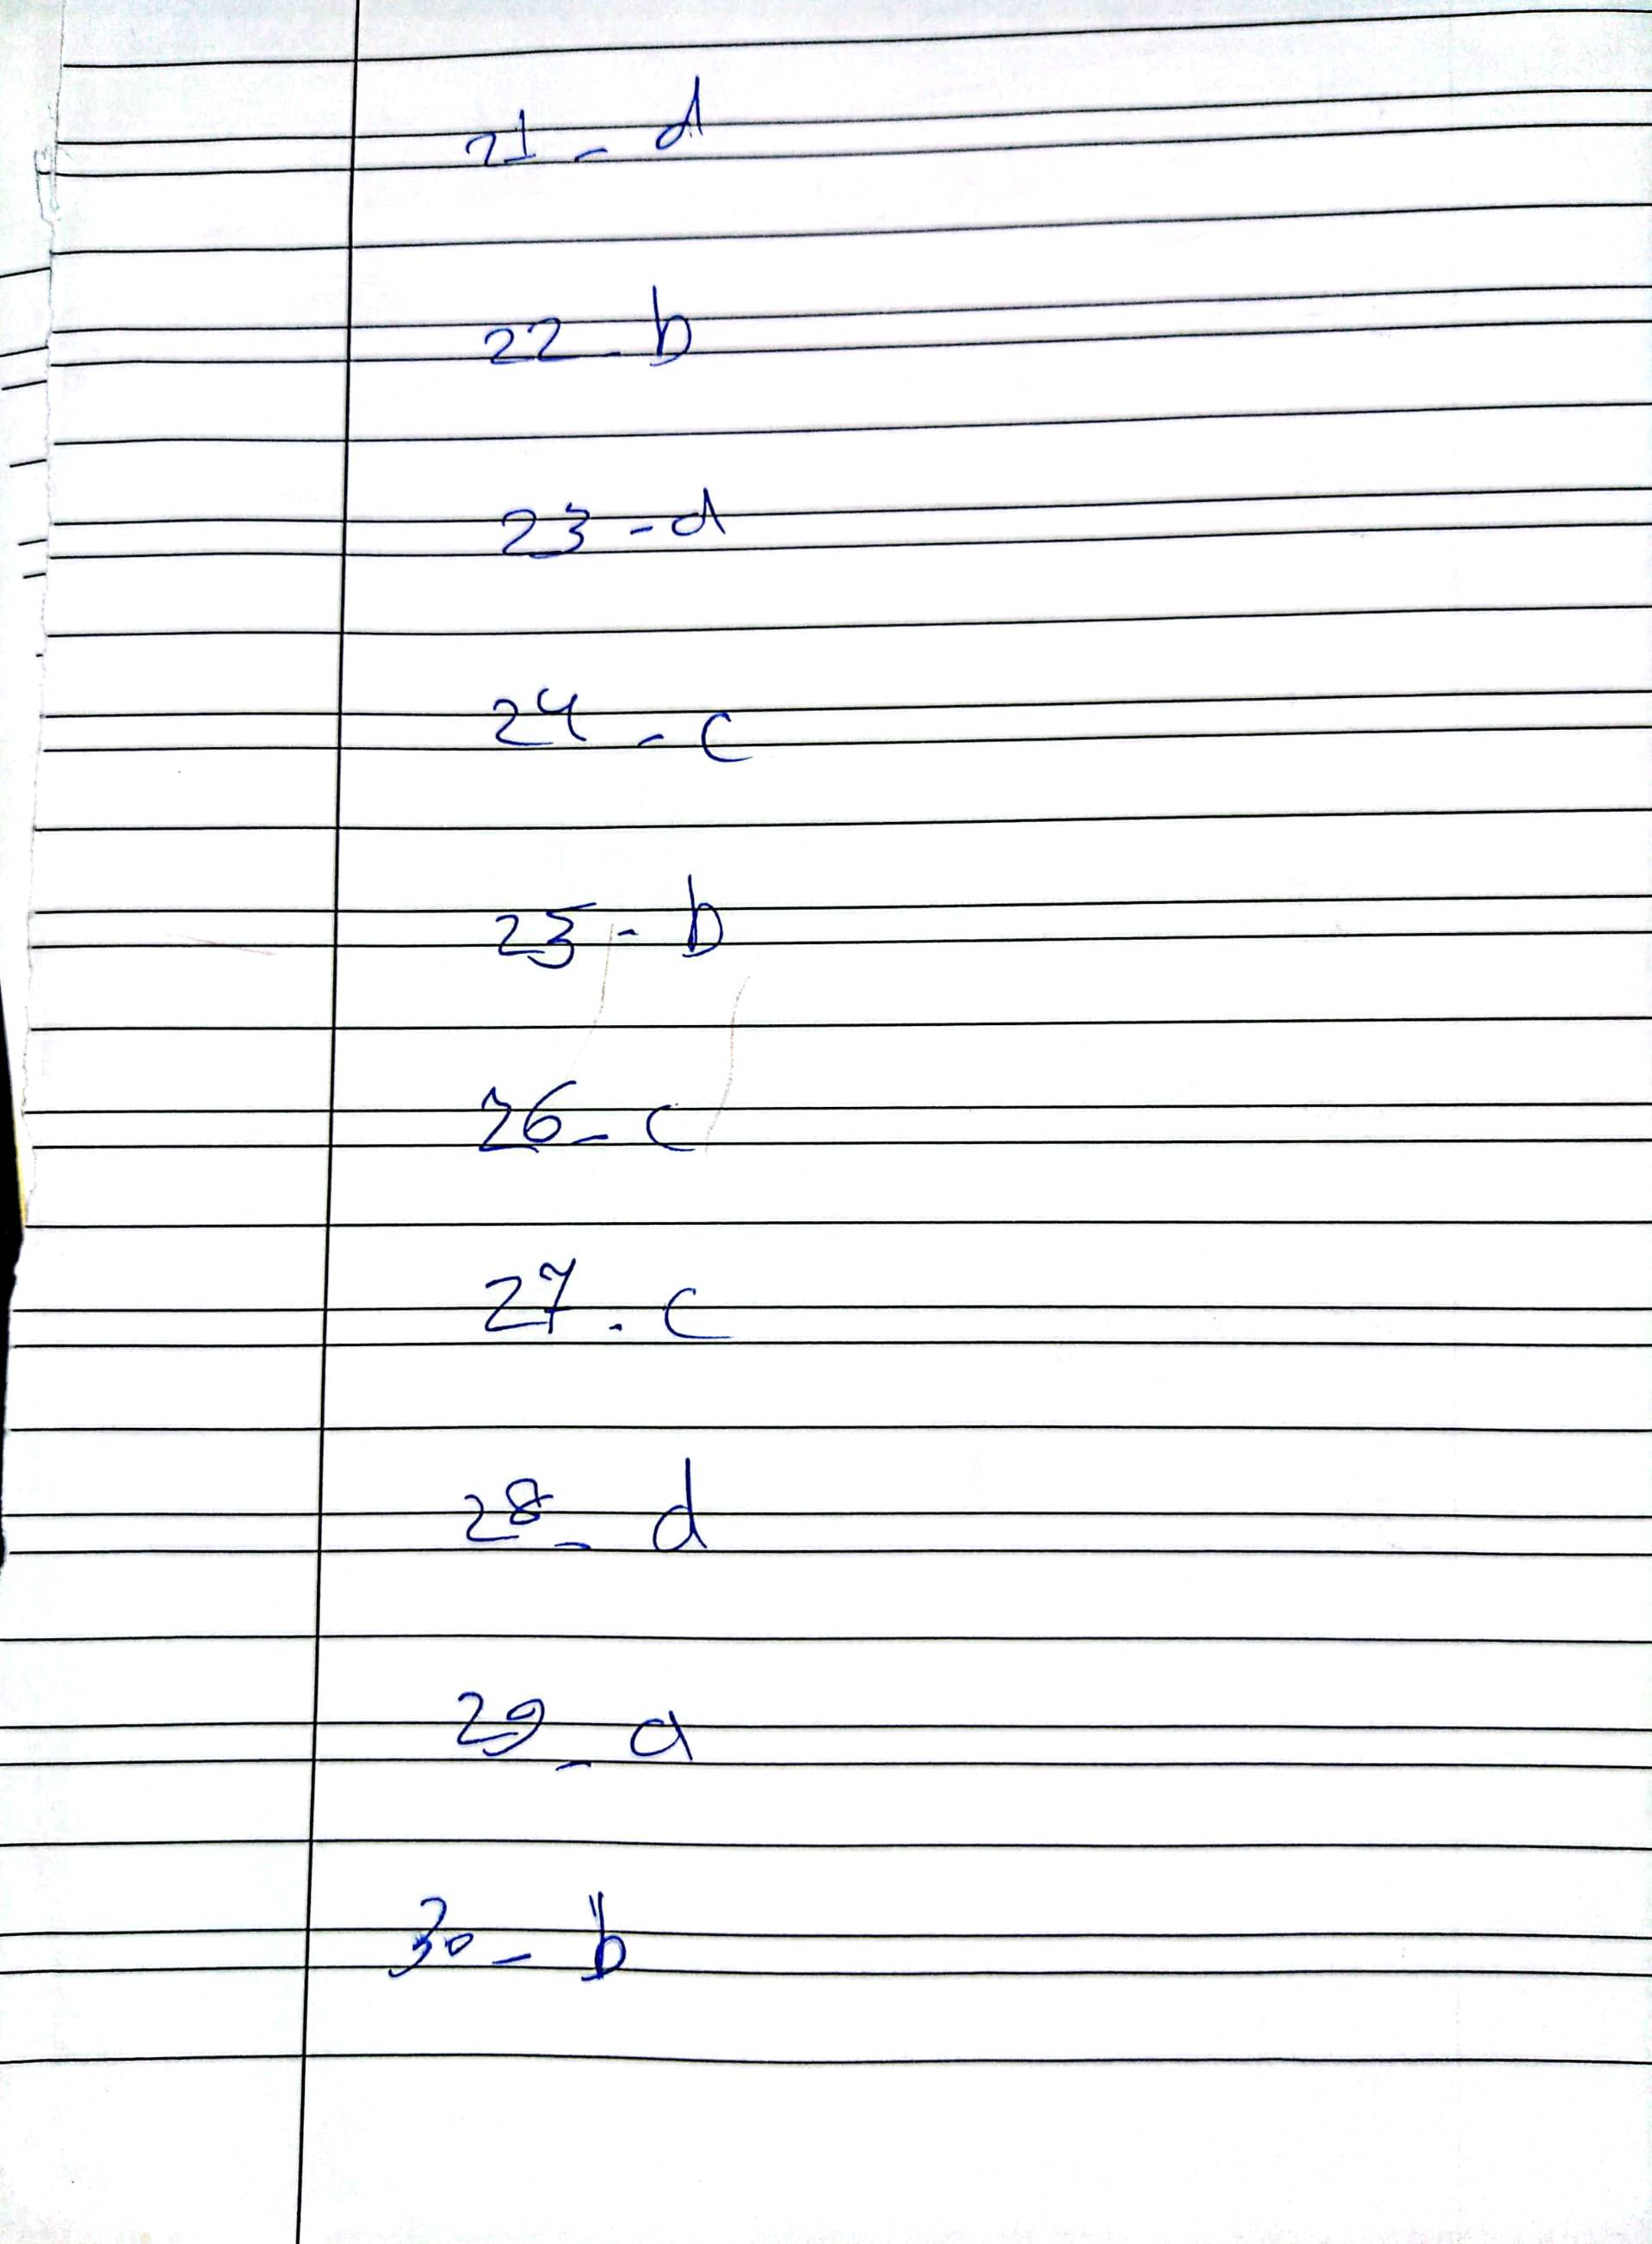 21 - d
22 - b
23 - d
24 - c
25 - b
26 - c
27 - c
28 - d
29 - a
30 - b